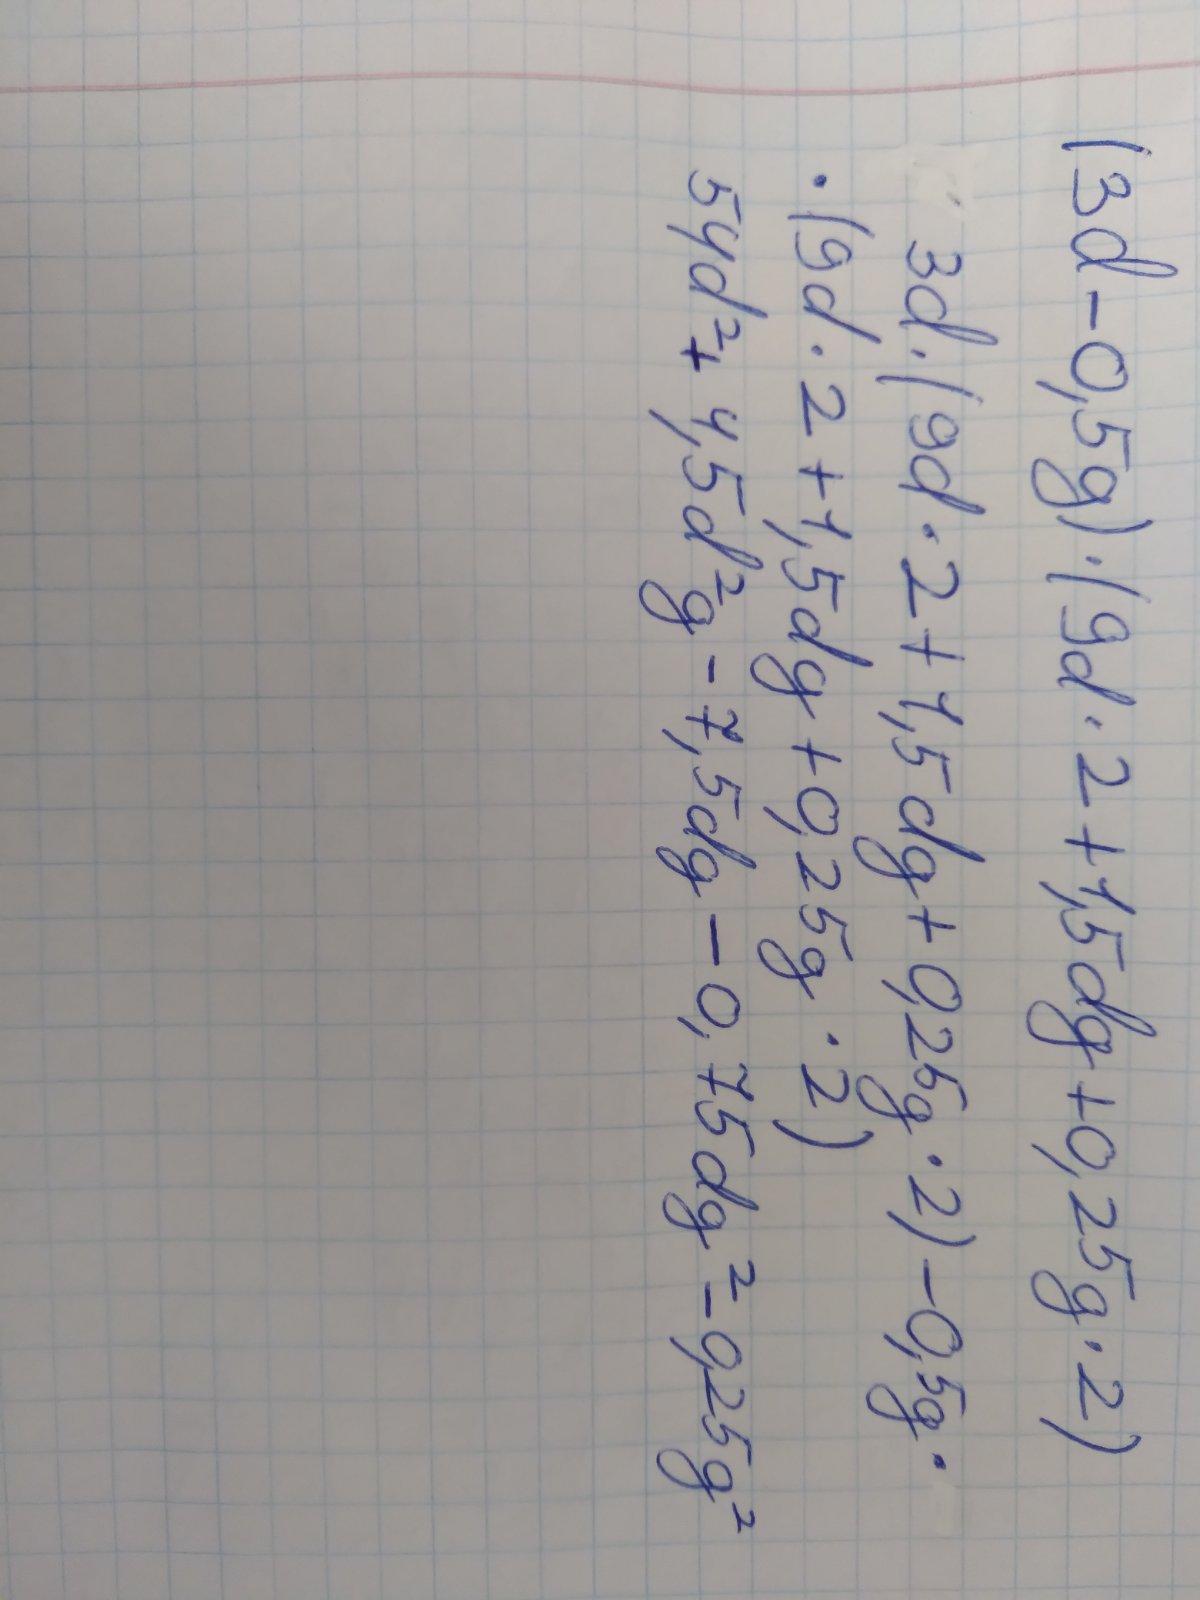 (3d-0,5g)·(9d·2+1,5dg+0,25g·2)
3d·(9d·2+1,5dg+0,25g·2)-0,5g·
·(9d·2+1,5dg+0,25g·2)
54d²+4,5d²g-7,5dg-0,75dg²-0,25g²